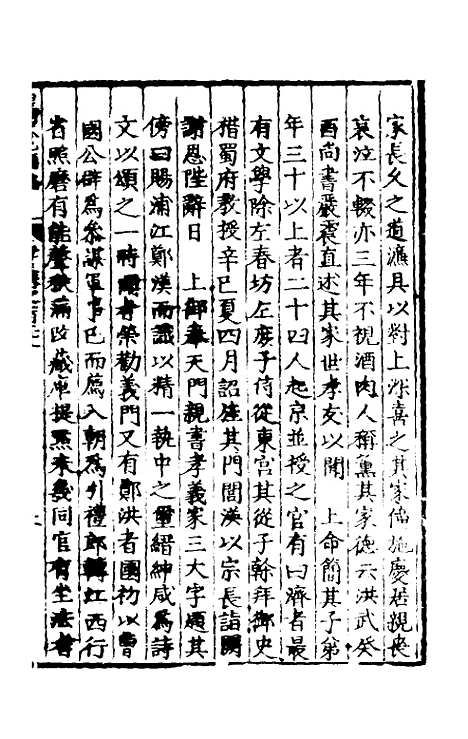 家長久之道濂具以對上深喜之其家僮施慶居親喪
哀泣不輟亦三年不視酒肉人稱薰其家德云洪武癸
酉尚書嚴震直述其家世孝友以聞　上命簡其子弟
年三十以上者二十四人起京並授之官有曰濟者最
有文學除左春坊左庶子侍從東宮其從子幹拜御史
楷蜀府教授辛巳夏四月詔旌其門閭渶以宗長詣闕
謝恩陛辭日　上御奉天門親書孝義家三大字題其
傍曰賜浦江鄭渶而識以精一執中之璽縉紳咸為詩
文以頌之一時曜者榮勸義門又有鄭洪者國初以曹
國公辟為參謀軍事已而薦入朝為引禮郎轉江西行
省照磨有能聲秩滿改藏庫提點來幾同官有坐法者